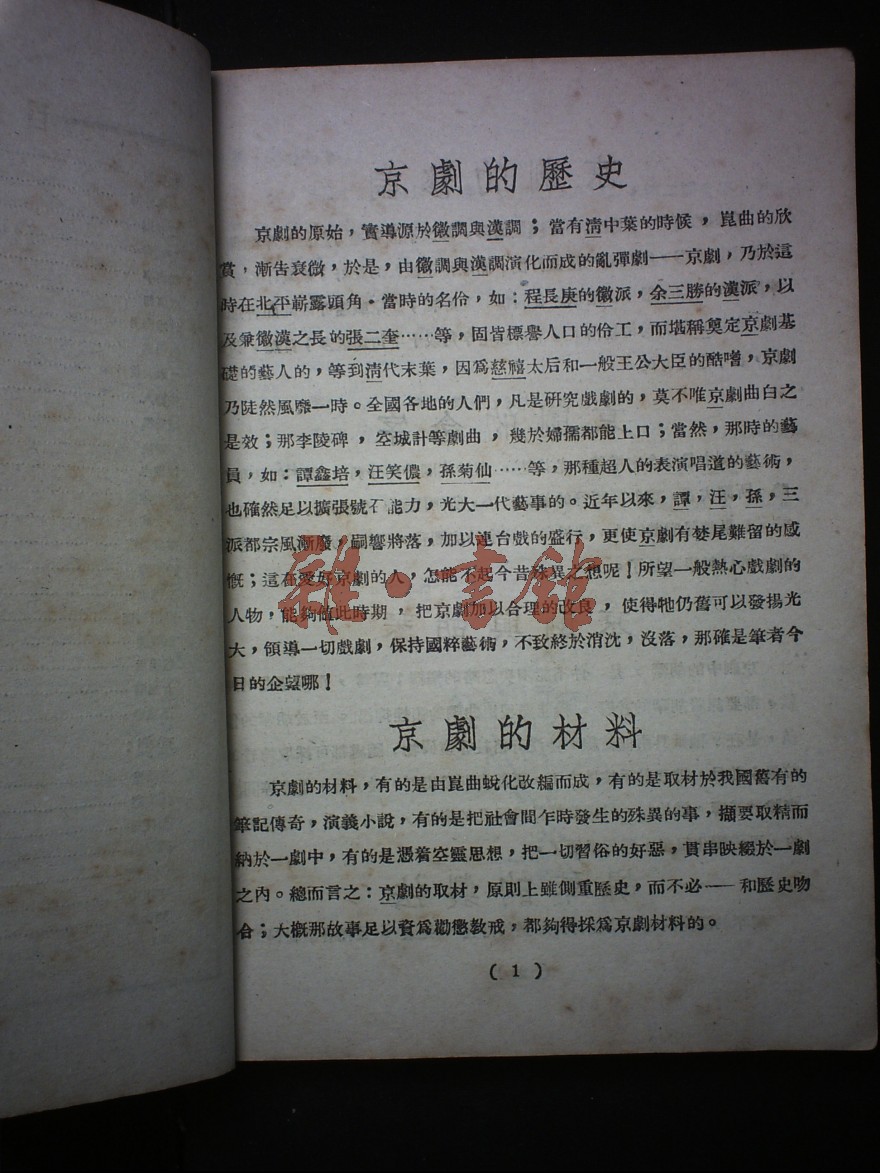 京劇的歷史
京劇的原始，實導源於徽調與漢調；當有清中葉的時候，崑曲的欣
賞，漸告衰微，於是，由徽調與漢調演化而成的亂彈劇——京劇，乃於這
時在北平嶄露頭角。當時的名伶，如：程長庚的徽派，余三勝的漢派，以
及兼徽漢之長的張二奎……等，固皆標譽人口的伶工，而堪稱奠定京劇基
礎的藝人的，等到清代末葉，因爲慈禧太后和一般王公大臣的酷嗜，京劇
乃陡然風靡一時。全國各地的人們，凡是研究戲劇的，莫不唯京劇曲白之
是效；那李陵碑，空城計等劇曲，幾於婦孺都能上口；當然，那時的藝
員，如：譚鑫培，汪笑儂，孫菊仙……等，那種超人的表演唱道的藝術，
也確然足以擴張號召能力，光大一代藝事的。近年以來，譚，汪，孫，三
派都宗風漸廢，嗣響將落，加以連台戲的盛行，更使京劇有婪尾難留的感
慨；這在愛好京劇的人，怎能不起今昔殊異之想呢！所望一般熱心戲劇的
人物，能夠值此時期，把京劇加以合理的改良，使得牠仍舊可以發揚光
大，領導一切戲劇，保持國粹藝術，不致終於消沈，沒落，那確是筆者今
日的企望哪！
京劇的材料
京劇的材料，有的是由崑曲蛻化改編而成，有的是取材於我國舊有的
筆記傳奇，演義小說，有的是把社會間乍時發生的殊異的事，擷要取精而
納於一劇中，有的是憑着空靈思想，把一切習俗的好惡，貫串映綴於一劇
之內。總而言之：京劇的取材，原則上雖側重歷史，而不必——和歷史吻
合；大概那故事足以資爲勸懲敎戒，都夠得採爲京劇材料的。
( 1 )
雜·書館